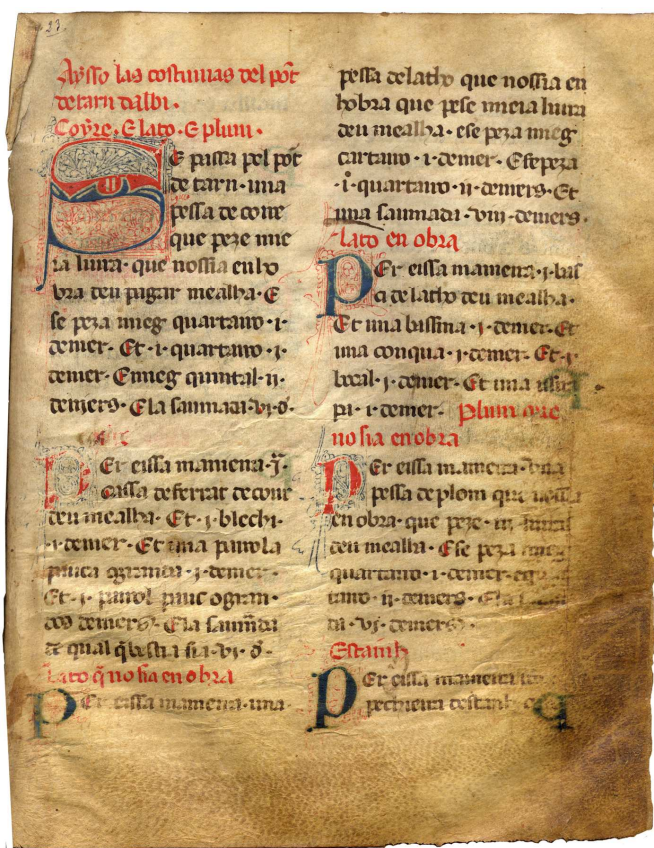 23
Aysso las costumas del pōt
de tarn dalbi.
Coyre. E lato. E plum.
Se passa pel pōt
de tarn. una
pessa de coire
que peze mie
ia liura. que nossia en ho
bra deu pagar mealha. E
se peza mieg quartairo. i.
denier. Et. i. quartairo. j.
denier. E mieg quintal. ii.
deniers. E la saumada. vi. d.
Per eissa maneira. j.
cassa de ferrat de coire
deu mealha. Et. j. blechi.
.i. denier. Et una pairola
pauca o granda. j. denier.
Et. i. pairol pauc o gran.
dos deniers. E la saumada
de qual q̄ bestia sia. vi. d.
Lato q̄ no sia en obra
Per eissa maneira. una.
pessa de lato que nossia en
hobra que pese mieia liura
deu mealha. e se peza mieg
cartairo. i. denier. E se peza
.i. quartairo. ii. deniers. Et
una saumada. viii. deniers.
Lato en obra
Per eissa maneira. j. bas
ci de lato deu mealha.
Et una bassina. j. denier. Et
una conqua. j. denier. Et. j.
bocal. j. denier. Et una
pi. i. denier. Plum que
no sia en obra
Per eissa maneira. una
pessa de plom que nossia
en obra. que peze. liura
deu mealha. E se peza mieg
quartairo. i. denier.
ii. deniers. E la
da. vi. deniers.
Estanh
Per eissa maneira
pechieira destanh